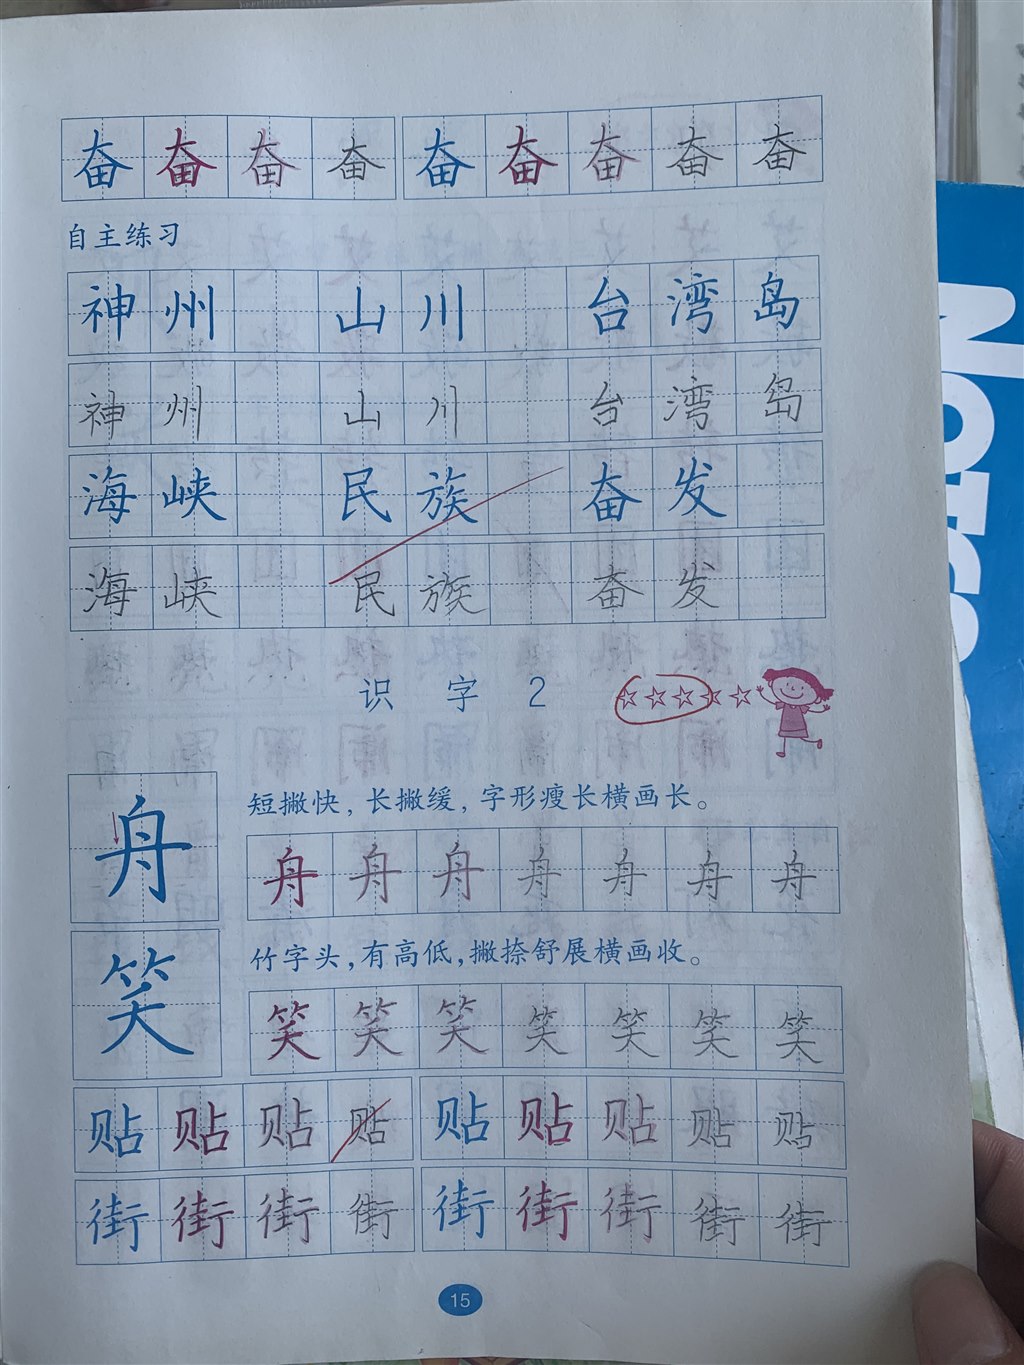 奋奋奋奋 奋奋奋奋奋
自主练习
神州 山川 台湾岛
神州 山川 台湾岛
海峡 民族 奋发
海峡 民族 奋发
识字2
短撇快，长撇缓，字形瘦长横画长。
舟 舟舟舟舟舟舟舟
竹字头，有高低，撇捺舒展横画收。
笑 笑笑笑笑笑笑笑
贴贴贴贴 贴贴贴贴贴
街街街街 街街街街街
15